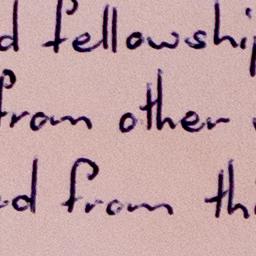 d fellowship
from other
d from thi